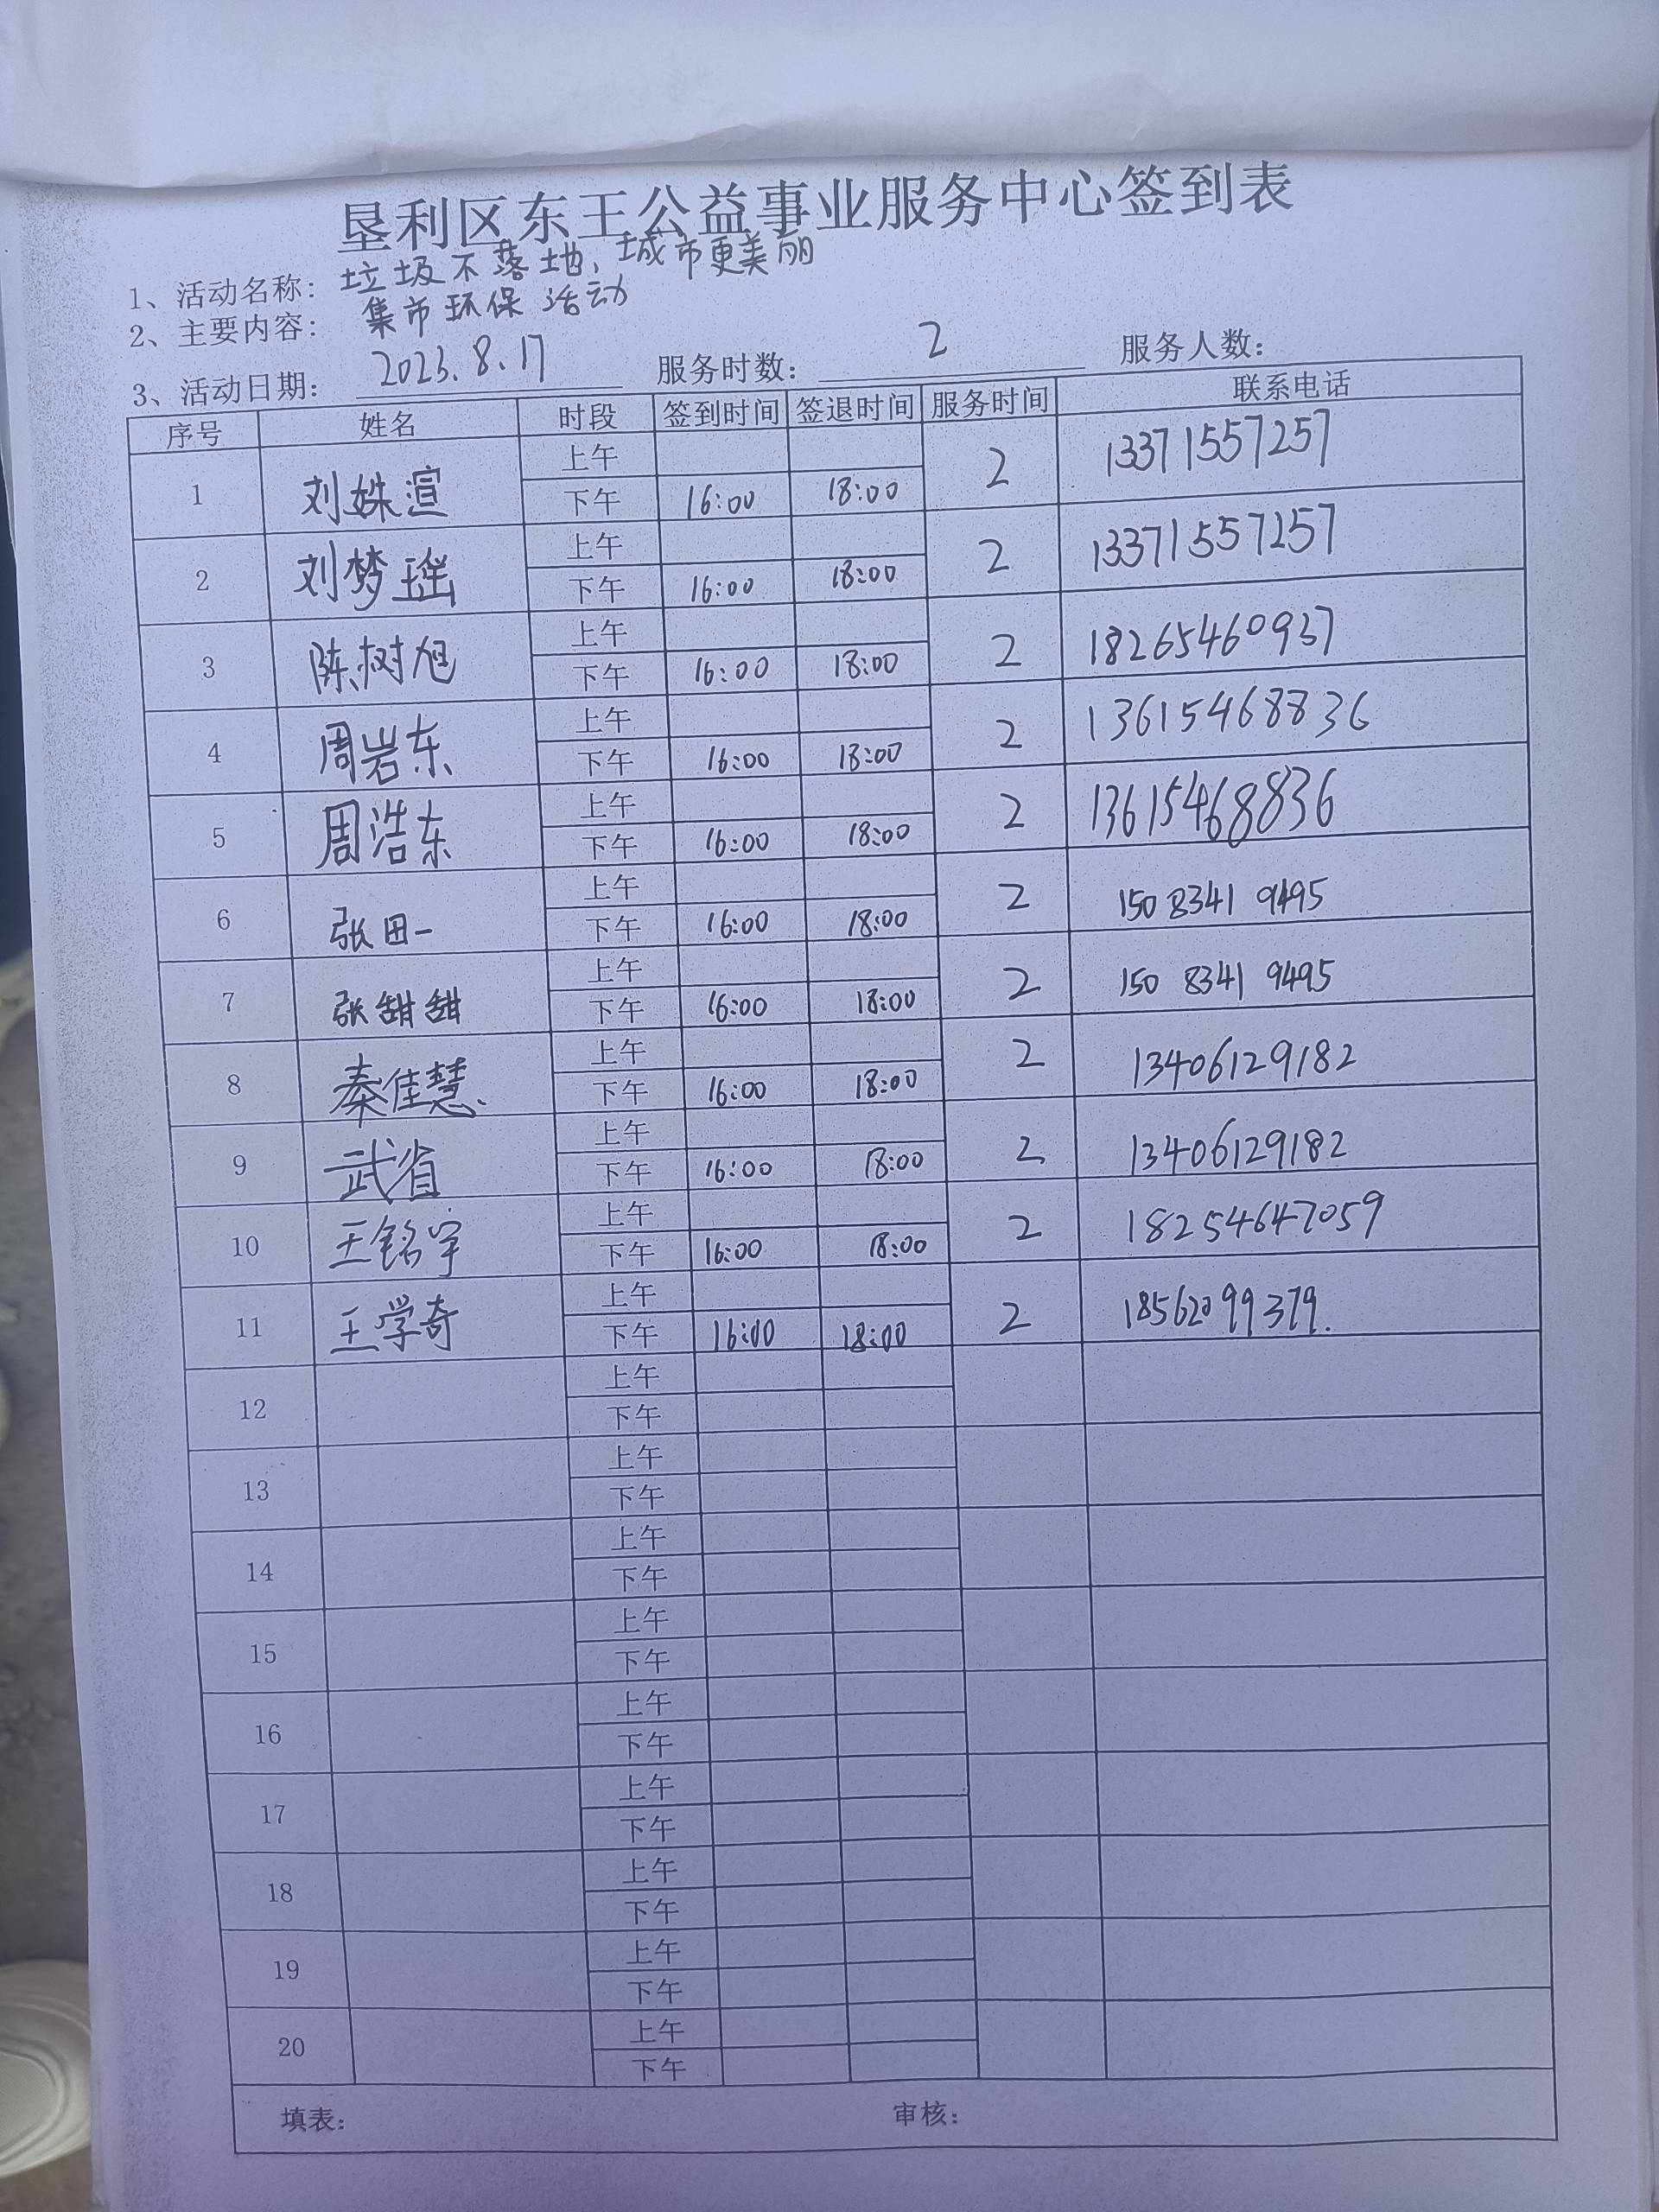 垦利区东王公益事业服务中心签到表
1、活动名称：垃圾不落地，城市更美丽
2、主要内容：集市环保活动
3、活动日期：2023.8.17 服务时数：2 服务人数：
序号 姓名 时段 签到时间 签退时间 服务时间 联系电话
1 刘姝渲 上午 2 13371557257
下午 16:00 18:00
2 刘梦瑶 上午 2 13371557257
下午 16:00 18:00
3 陈树旭 上午 2 18265460937
下午 16:00 18:00
4 周岩东 上午 2 13615468836
下午 16:00 18:00
5 周浩东 上午 2 13615468836
下午 16:00 18:00
6 张田一 上午 2 150 8341 9495
下午 16:00 18:00
7 张甜甜 上午 2 150 8341 9495
下午 16:00 18:00
8 秦佳慧 上午 2 13406129182
下午 16:00 18:00
9 武省 上午 2 13406129182
下午 16:00 18:00
10 王铭宇 上午 2 18254647059
下午 16:00 18:00
11 王学奇 上午 2 18562099379.
下午 16:00 18:00
12 上午
下午
13 上午
下午
14 上午
下午
15 上午
下午
16 上午
下午
17 上午
下午
18 上午
下午
19 上午
下午
20 上午
下午
填表： 审核：